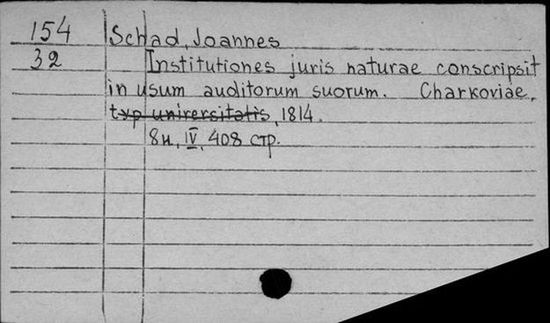 154 Schad, Joannes
32 Institutiones juris naturae conscripsit
in usum auditorum suorum. Charkoviae,
typ universitatis, 1814.
8н, IV, 408 стр.